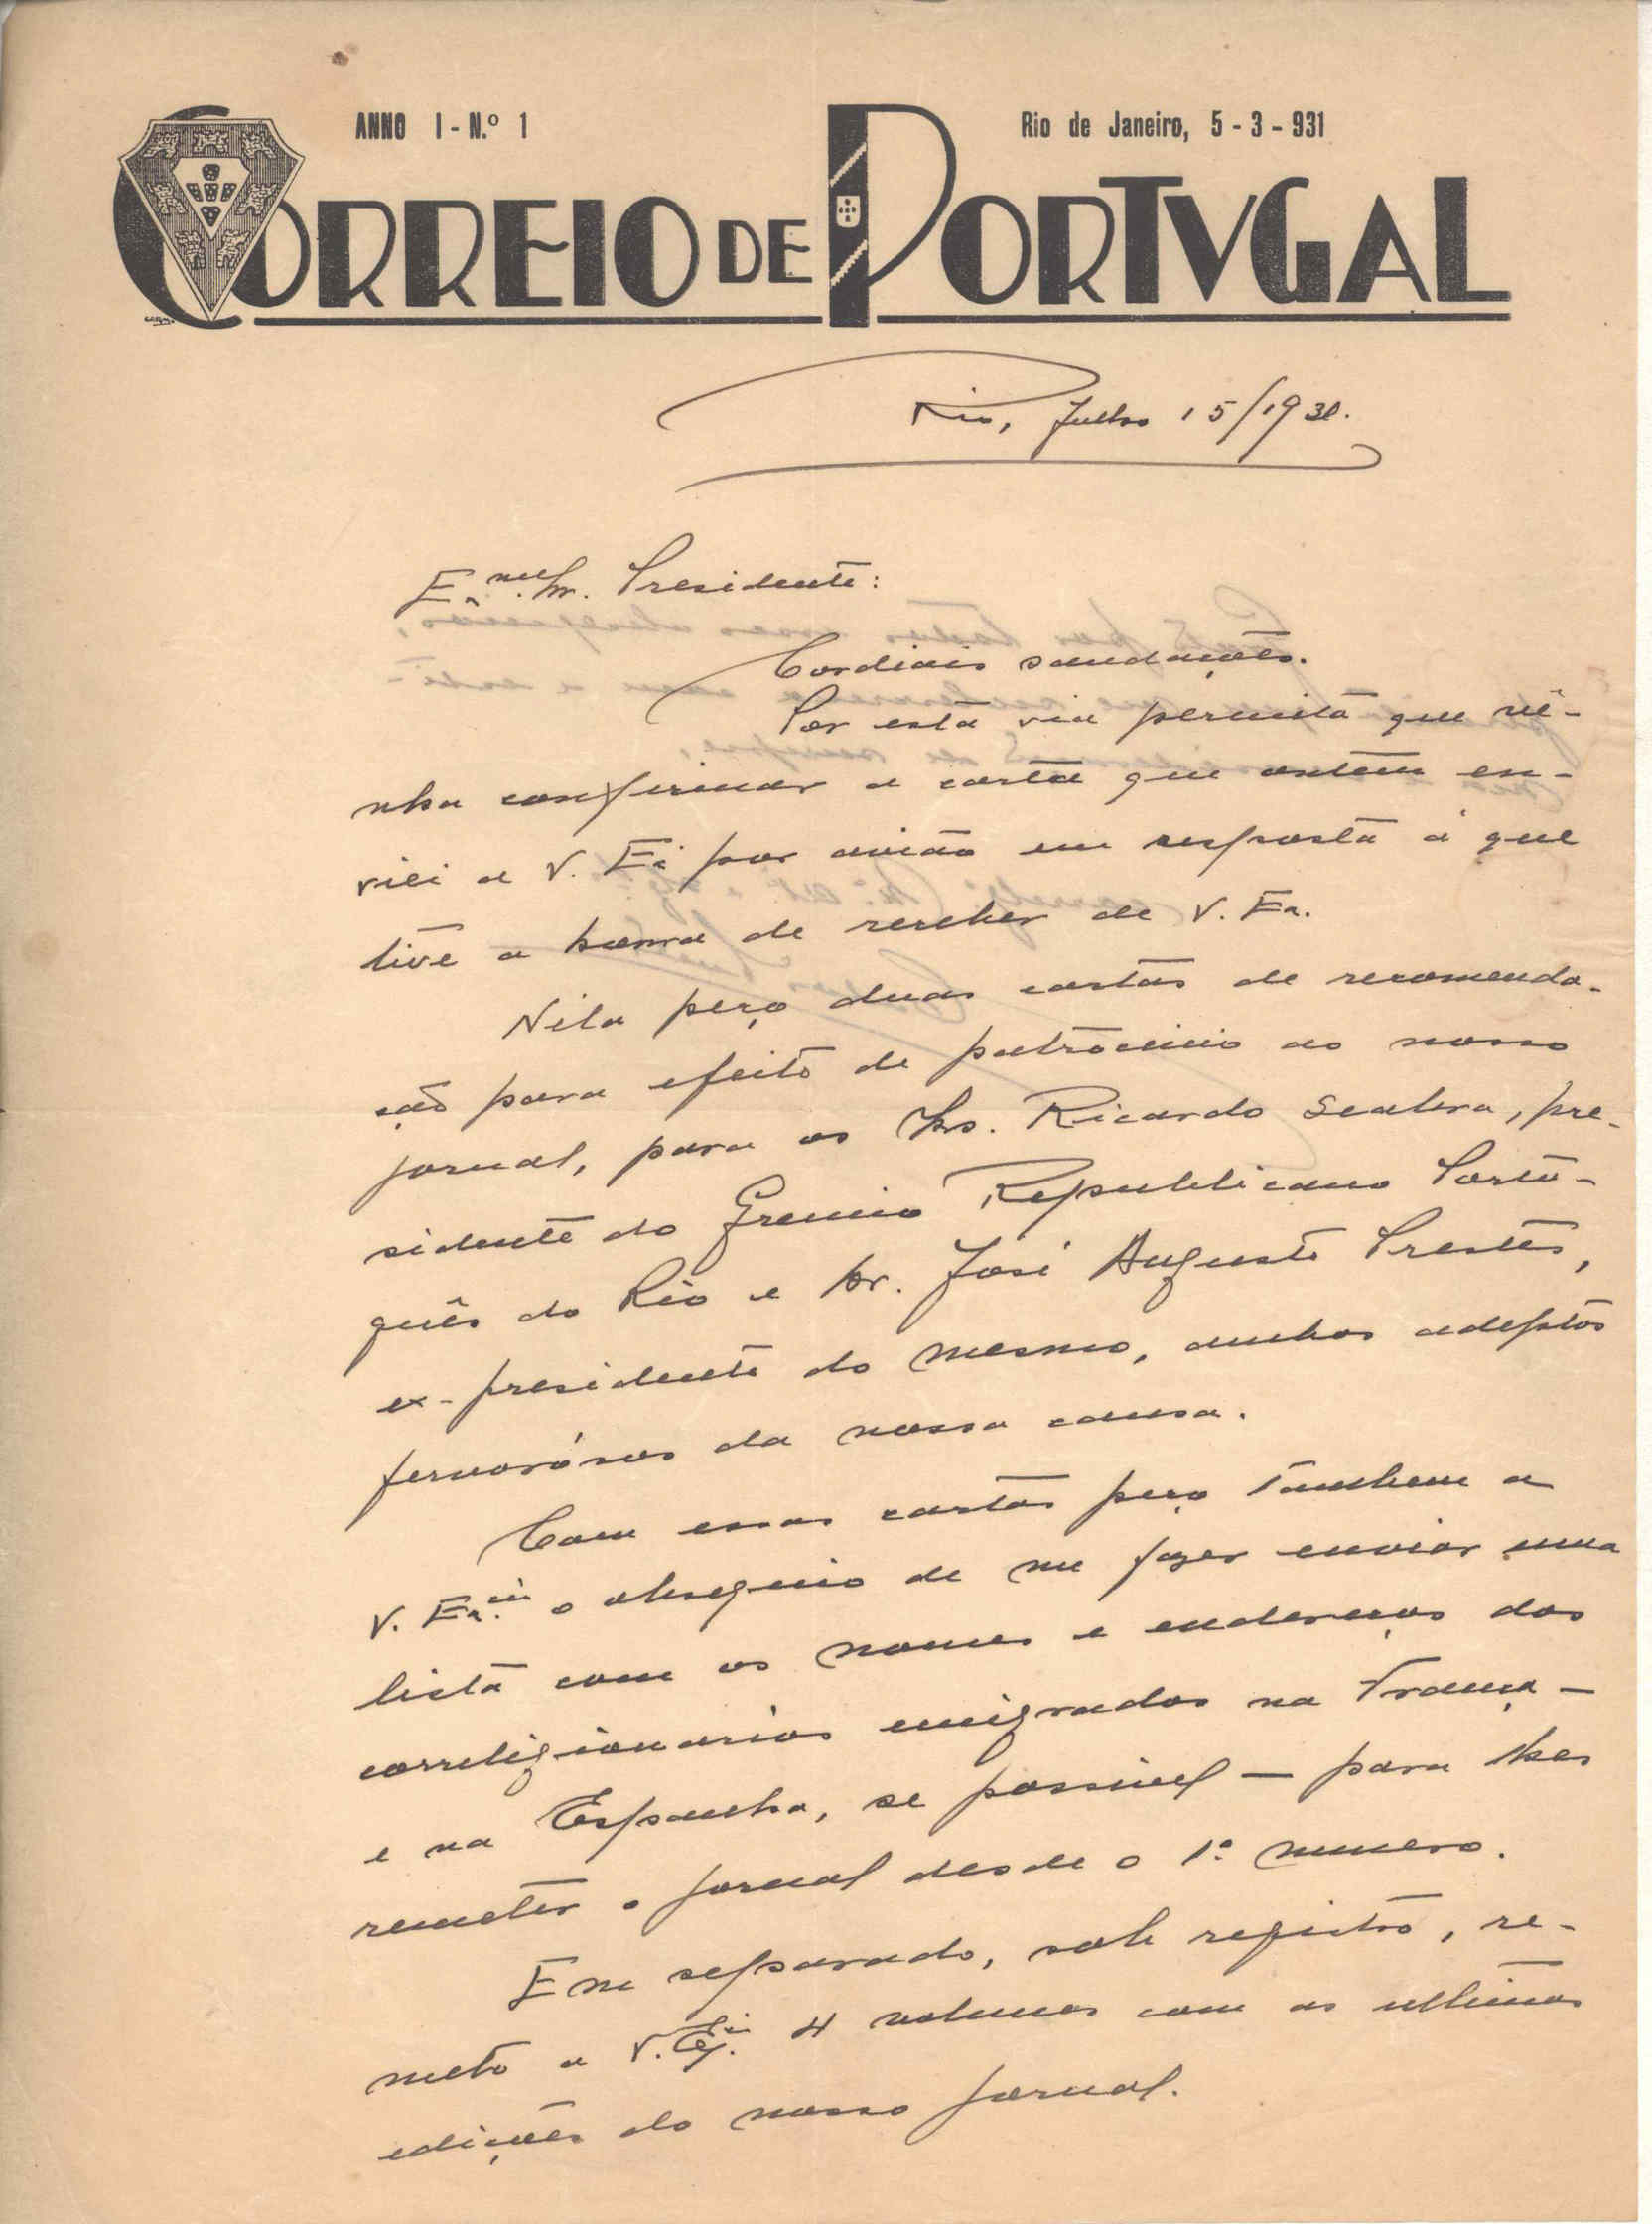 ANNO I - N.º 1
Rio de Janeiro, 5 - 3 - 931
CORREIO DE PORTVGAL
Rio, Julho 15/1931.
Exmo. Sr. Presidente:
Cordiais saudações.
Por esta via permita que vê-
nha confirmar a carta que ontem en-
viei a V. Exª por avião em resposta á que
tive a honra de receber de V. Exa.
Nela peço duas cartas de recomenda-
ção para efeito de patrocinio ao nosso
jornal, para os Srs. Ricardo Seabra, pre-
sidente do Gremio Republicano Portu-
guês do Rio e Sr. José Augusto Prestes,
ex-presidente do mesmo, ambos adeptos
fervorósos da nossa causa.
Com essas cartas peço tambem a
V. Exª o obsequio de me fazer enviar uma
lista com os nomes e endereços dos
correligionarios emigrados na França -
e na Espanha, se possivel - para lhes
remeter o jornal desde o 1º numero.
Em separado, sob registro, re-
meto a V. Exª 4 volumes com as ultimas
edições do nosso jornal.